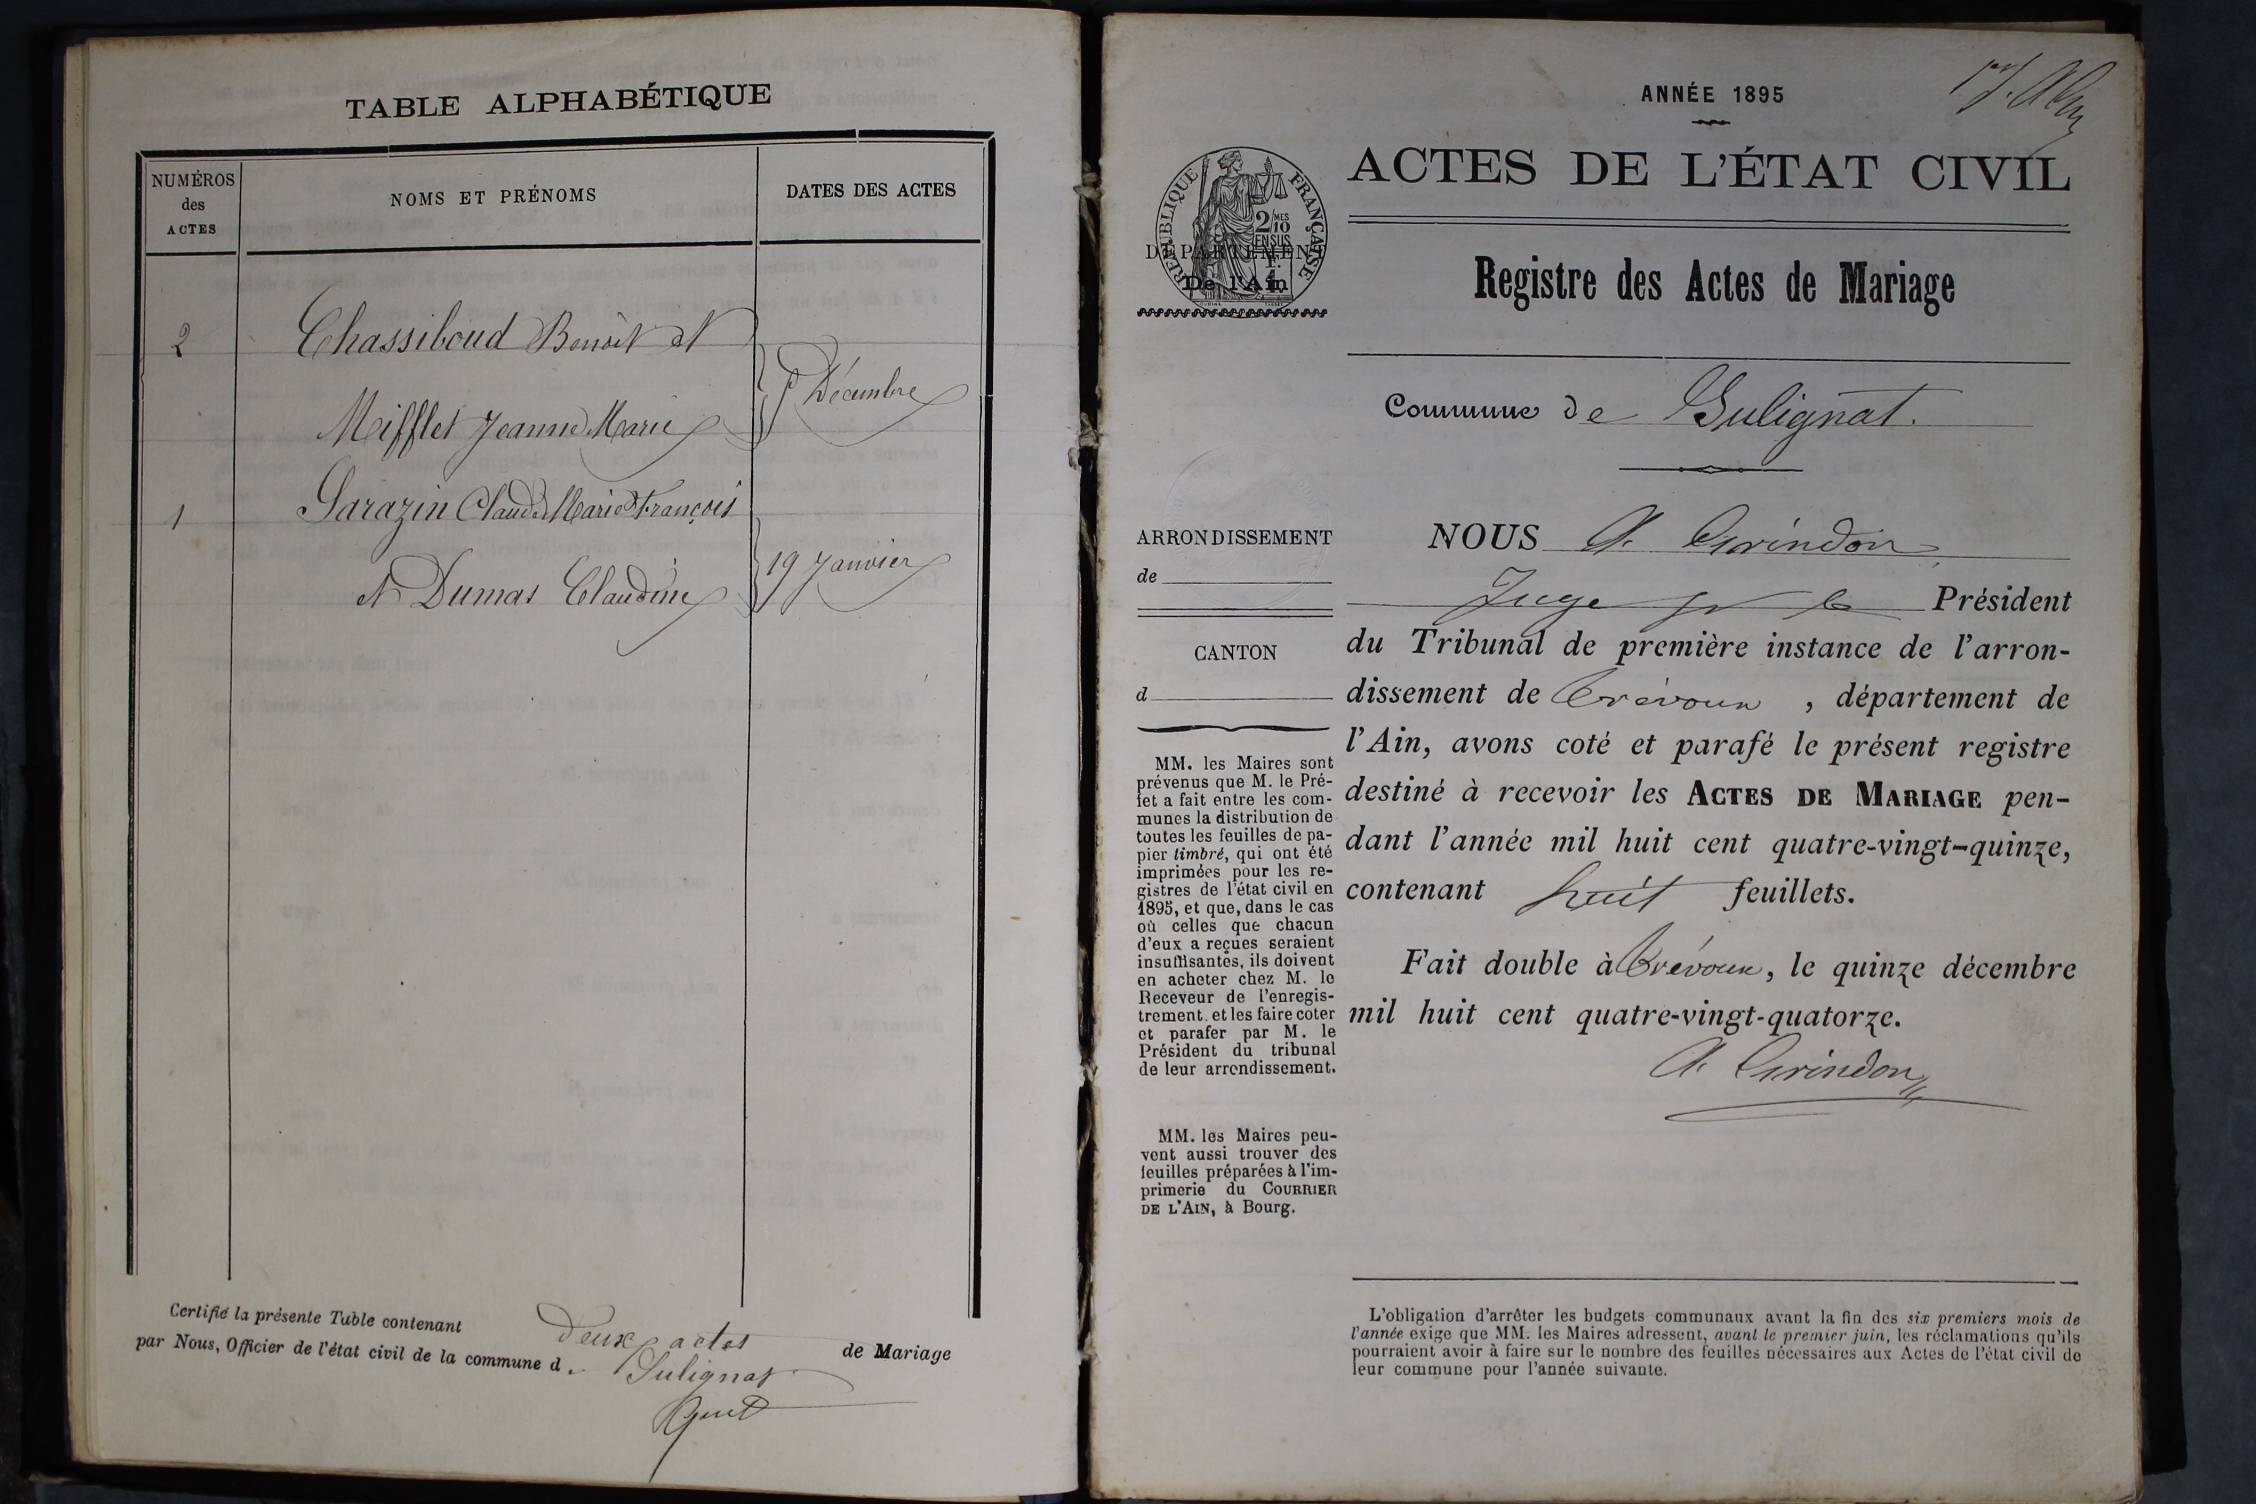 TABLE ALPHABÉTIQUE
NUMÉROS
des
ACTES
NOMS ET PRÉNOMS
DATES DES ACTES
2
Chassiboud Benoît et
Mifflet Jeanne Marie
Décembre
1
Sarazin Claude Marie François
et Dumas Claudine
19 Janvier
Certifié la présente Table contenant
deux actes
de Mariage
par Nous, Officier de l'état civil de la commune d
Sulignat
ANNÉE 1895
ACTES DE L'ÉTAT CIVIL
RÉPUBLIQUE FRANÇAISE
2/10MES
EN SUS
DÉPARTEMENT
De l'Ain
Registre des Actes de Mariage
Commune de Sulignat.
ARRONDISSEMENT
de
CANTON
d
MM. les Maires sont
prévenus que M. le Pré-
fet a fait entre les com-
munes la distribution de
toutes les feuilles de pa-
pier timbré, qui ont été
imprimées pour les re-
gistres de l'état civil en
1895, et que, dans le cas
où celles que chacun
d'eux a reçues seraient
insuffisantes, ils doivent
en acheter chez M. le
Receveur de l'enregis-
trement. et les faire coter
et parafer par M. le
Président du tribunal
de leur arrondissement.
MM. les Maires peu-
vent aussi trouver des
feuilles préparées à l'im-
primerie du COURRIER
DE L'AIN, à Bourg.
NOUS A. Grindon
Juge Président
du Tribunal de première instance de l'arron-
dissement de Trévoux, département de
l'Ain, avons coté et parafé le présent registre
destiné à recevoir les ACTES DE MARIAGE pen-
dant l'année mil huit cent quatre-vingt-quinze,
contenant huit feuillets.
Fait double à Trévoux, le quinze décembre
mil huit cent quatre-vingt-quatorze.
A. Grindon
L'obligation d'arrêter les budgets communaux avant la fin des six premiers mois de
l'année exige que MM. les Maires adressent, avant le premier juin, les réclamations qu'ils
pourraient avoir à faire sur le nombre des feuilles nécessaires aux Actes de l'état civil de
leur commune pour l'année suivante.